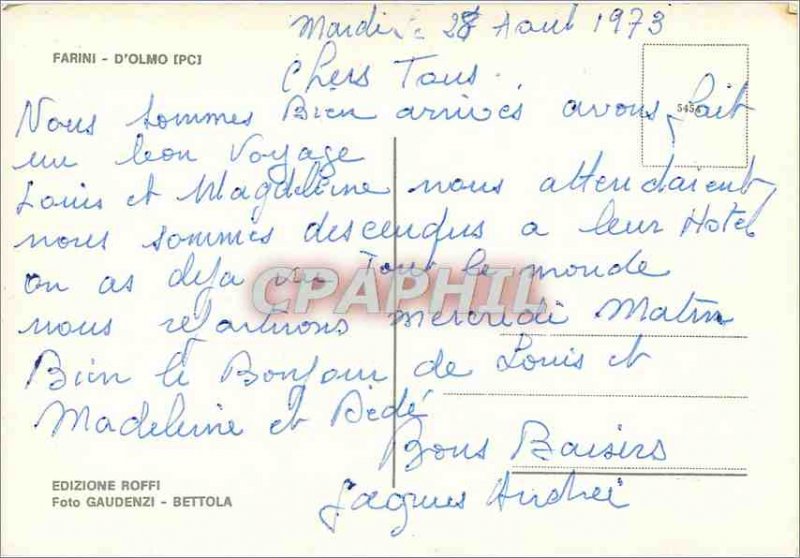 Mardi - 28 Aout 1973
FARINI - D'OLMO [PC]
Chers Tous.
5454
Nous sommes Bien arrivés avons fait
un bon voyage
Louis et Magdeleine nous attendaient,
nous sommes descendus a leur Hotel
on as deja vu Tout le monde
CPAPHIL
nous repartirons mercredi Matin
Bien le Bonjour de Louis et
Madeleine et Dédé
Bons Baisers
Jaques André
EDIZIONE ROFFI
Foto GAUDENZI - BETTOLA